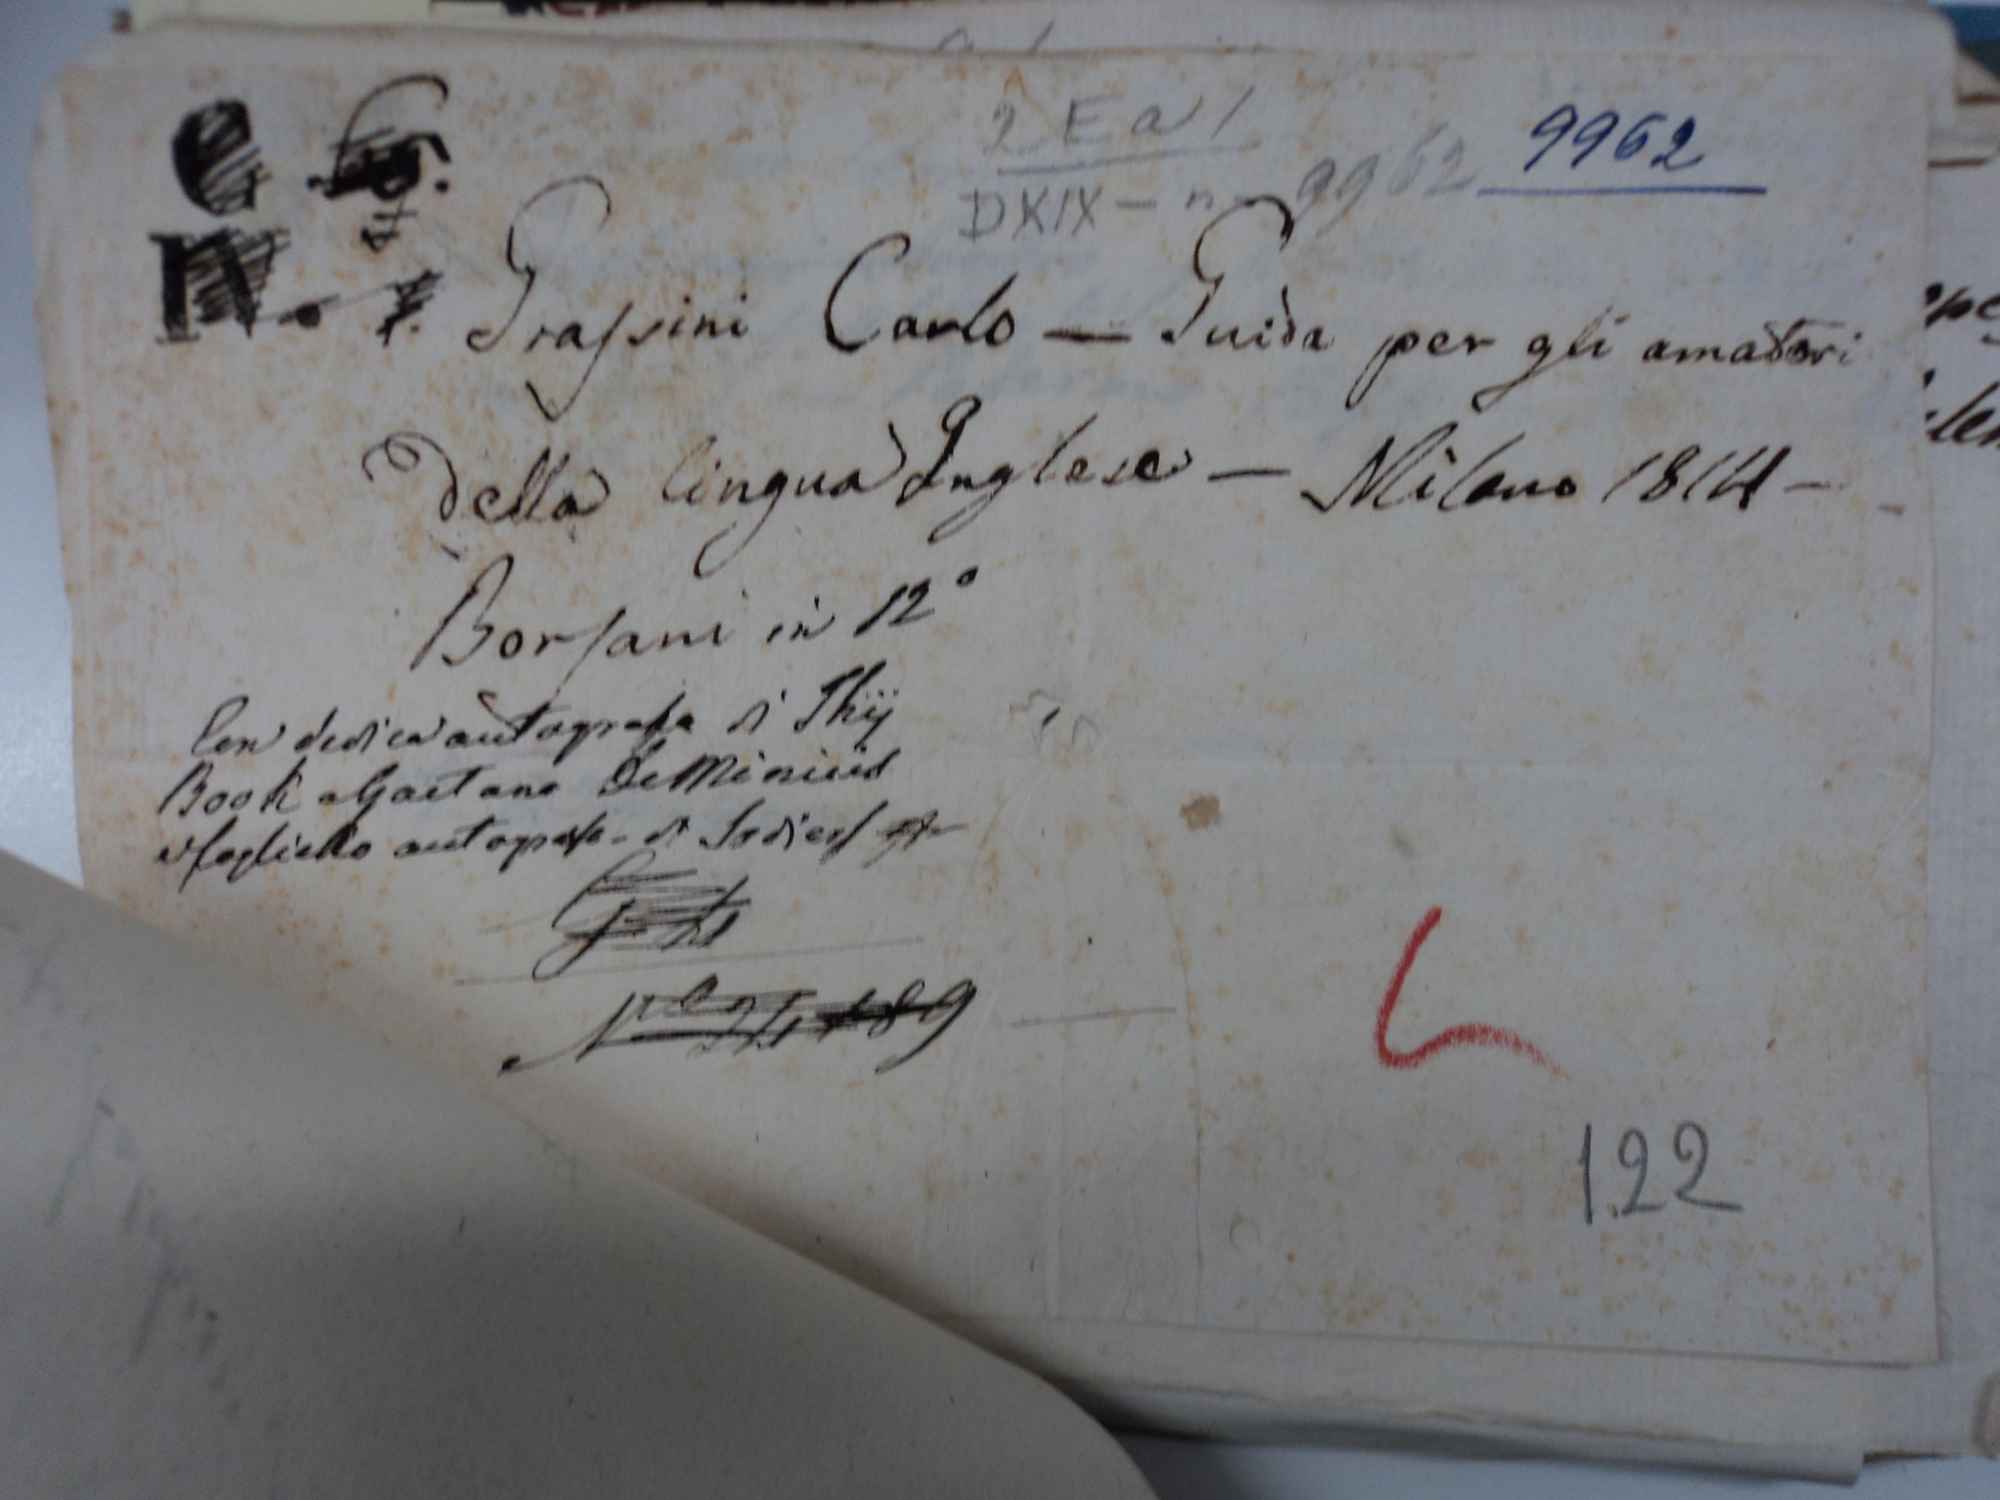 2 E a 1
9962
DXIX - n. 9962
Grassini Carlo — Guida per gli amatori
della lingua Inglese — Milano 1814 —
Borsani in 12°
Con dedica autografa di
Book a Gaetano De Minicis
e foglietto autografo di
122